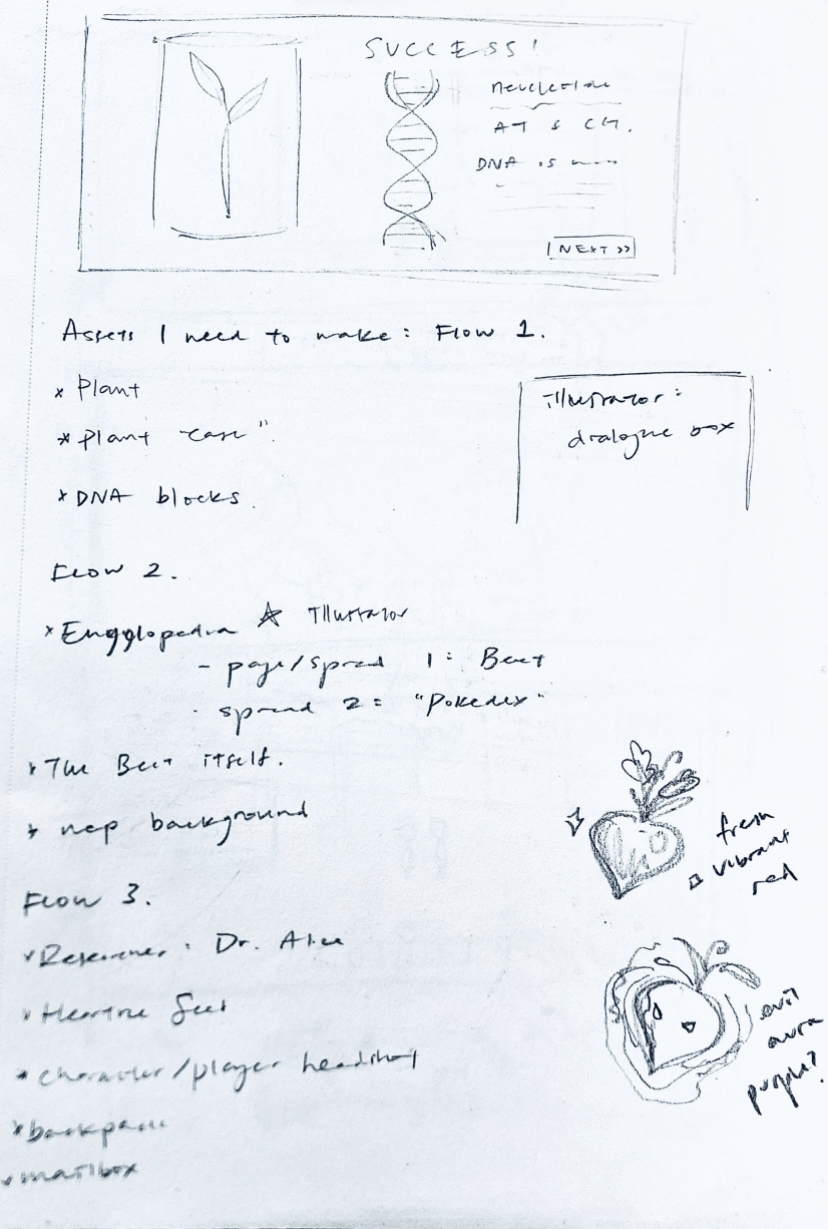 SUCCESS!
AT & CG.
DNA is
NEXT >>
Assets I need to make: Flow 1.
* Plant
* Plant "case".
* DNA blocks.
Illustrator:
dialogue box
Flow 2.
* Engylopedia ☆ Illustrator
- page/spread 1: Beet
- spread 2: "Pokedex"
* The Beet itself.
* background
fresh
vibrant
red
Flow 3.
* Researcher: Dr. Alice
* Beet
* character/player headshot
evil
aura
purple?
* backpack
* mailbox